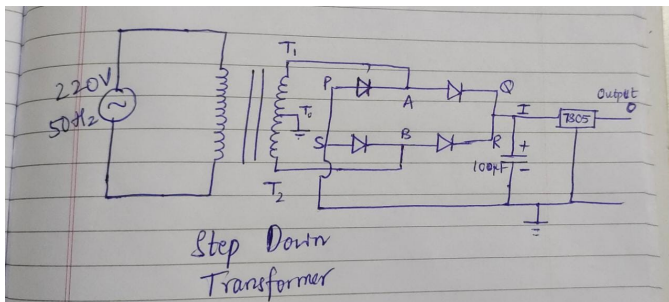 220V
50Hz
T1
T0
T2
P
A
Q
S
B
R
I
100μF
+
-
7805
Output
Step Down
Transformer